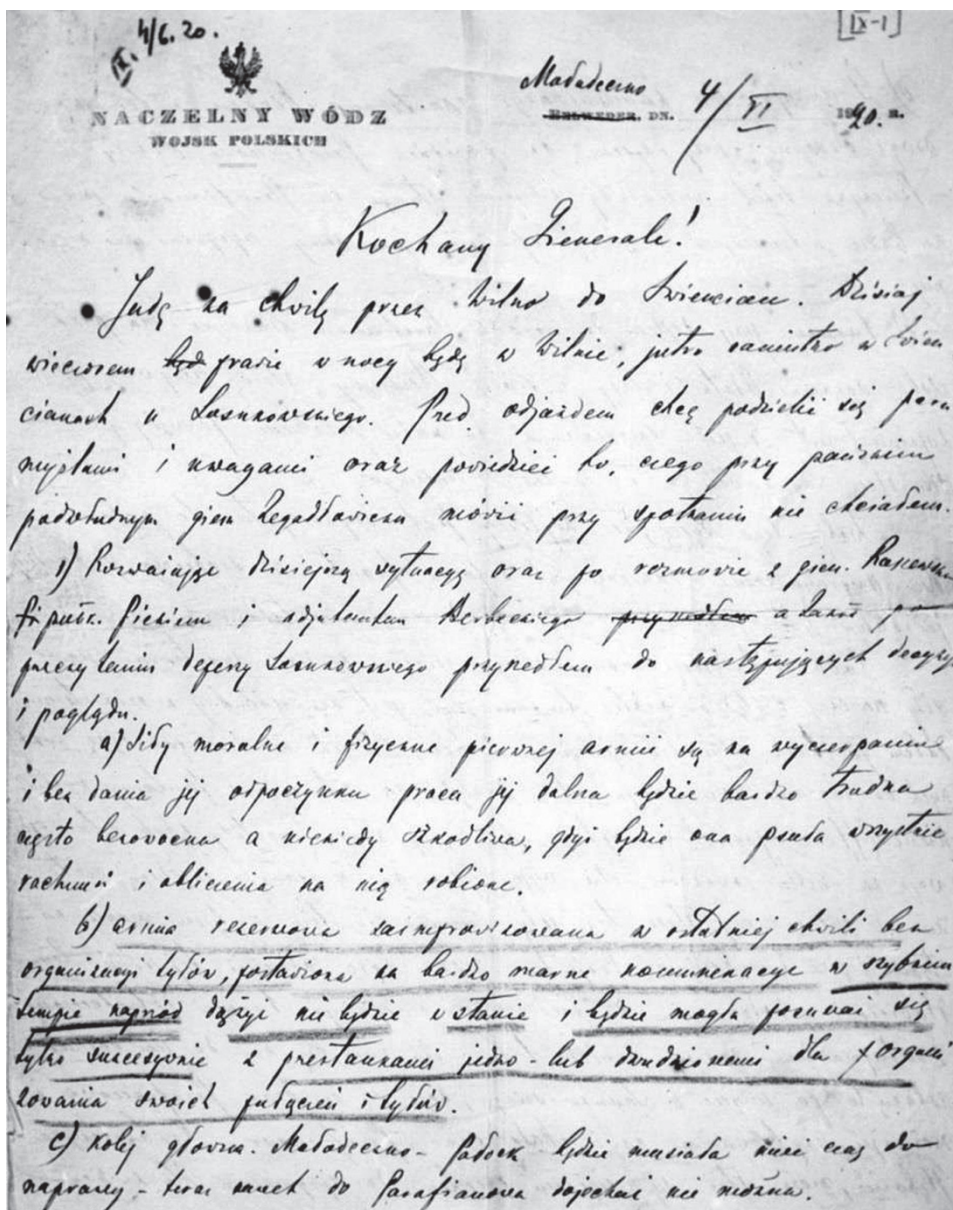 4/6. 20.
[IX-1]
NACZELNY WÓDZ
WOJSK POLSKICH
Mołodeczno
BELWEDER, DN. 4/VI 1920. R.
Kochany Gienerale!
Jadę na chwilę przez Wilno do Święcian. Dzisiaj
wieczorem będ prawie w nocy będę w Wilnie, jutro raniutko w Świen
cianach u Sosnkowskiego. Przed odjazdem chcę podzielić się paru
myślami i uwagami oraz powiedzieć to, czego przy pańskim
podwładnym gien Zegadłowiczu mówić przy spotkaniu nie chciałem.
1) Rozważając dzisiejszą sytuację oraz po rozmowie z gien.
pułk. Piskiem i adjutantem Berbeckiego przyszedłem a także po
przeczytaniu depeszy Sosnkowskiego przyszedłem do następujących decyzji
i poglądu.
a) Siły moralne i fizyczne pierwszej armii są na wyczerpaniu
i bez dania jej odpoczynku praca jej dalsza będzie bardzo trudna
często bezowocna a niekiedy szkodliwa, gdyż będzie ona psuła wszystkie
rachunki i obliczenia na nią robione.
b) armia rezerwowa zaimprowizowana w ostatniej chwili bez
organizacyi tyłów, postawiona na bardzo marne komunikacye w szybkim
tempie naprzód dążyć nie będzie w stanie i będzie mogła posuwać się
tylko sukcesywnie z przestankami jedno- lub dwudniowemi dla organi
zowania swoich połączeń i tyłów.
c) kolej główna. Mołodeczno - Połock będzie musiała mieć czas do
naprawy - teraz nawet do Parafianowa dojechać nie można.